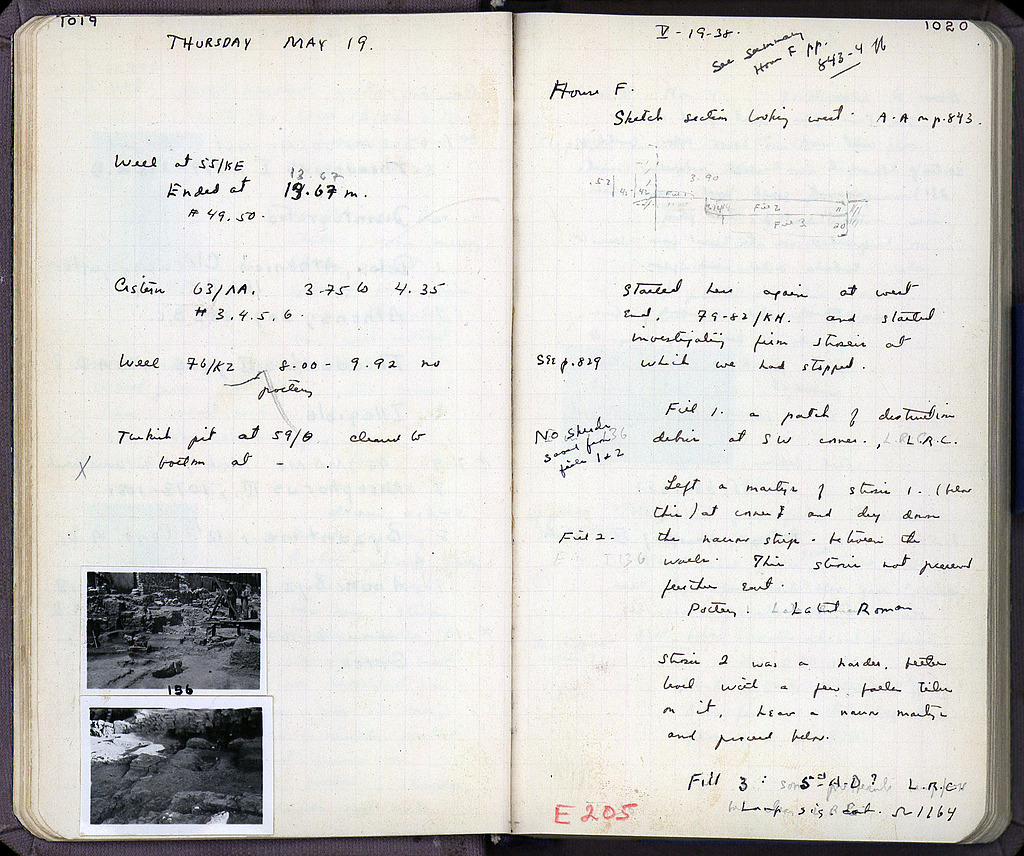 1019
THURSDAY MAY 19.
Well at 55/ΚΕ
13.67
Ended at 13.67 m.
# 49.50.
Cistern 63/ΛΑ. 3.75 to 4.35
# 3.4.5.6.
Well 76/ΚΖ 8.00 - 9.92 no
pottery
Turkish pit at 59/Θ cleared to
X bottom at -
156
1020
V-19-38.
See summary
House F pp.
843-4 ff
House F.
Sketch section looking west. A-A on p.843.
.52 3.90
Fill 1
Fill 2
Fill 3 20
Started here again at west
end, 79-82/ΚΗ. and started
investigating from strosis at
See p.829 which we had stopped.
Fill 1. a patch of destruction
debris at SW corner., L.R.C.
No sherds
saved from
fills 1+2
Left a martyr of strosis 1. (here
this) at corner and dug down
Fill 2. the narrow strip. between the
walls. This strosis not preserved
further East.
Pottery. Late Roman
Strosis 2 was a harder, better
level with a few fallen tiles
on it, Leave a narrow martyr
and proceed below.
Fill 3: 5th A.D? L.R.C.
Lamp sig Σωτ. Λ 1164
E 205